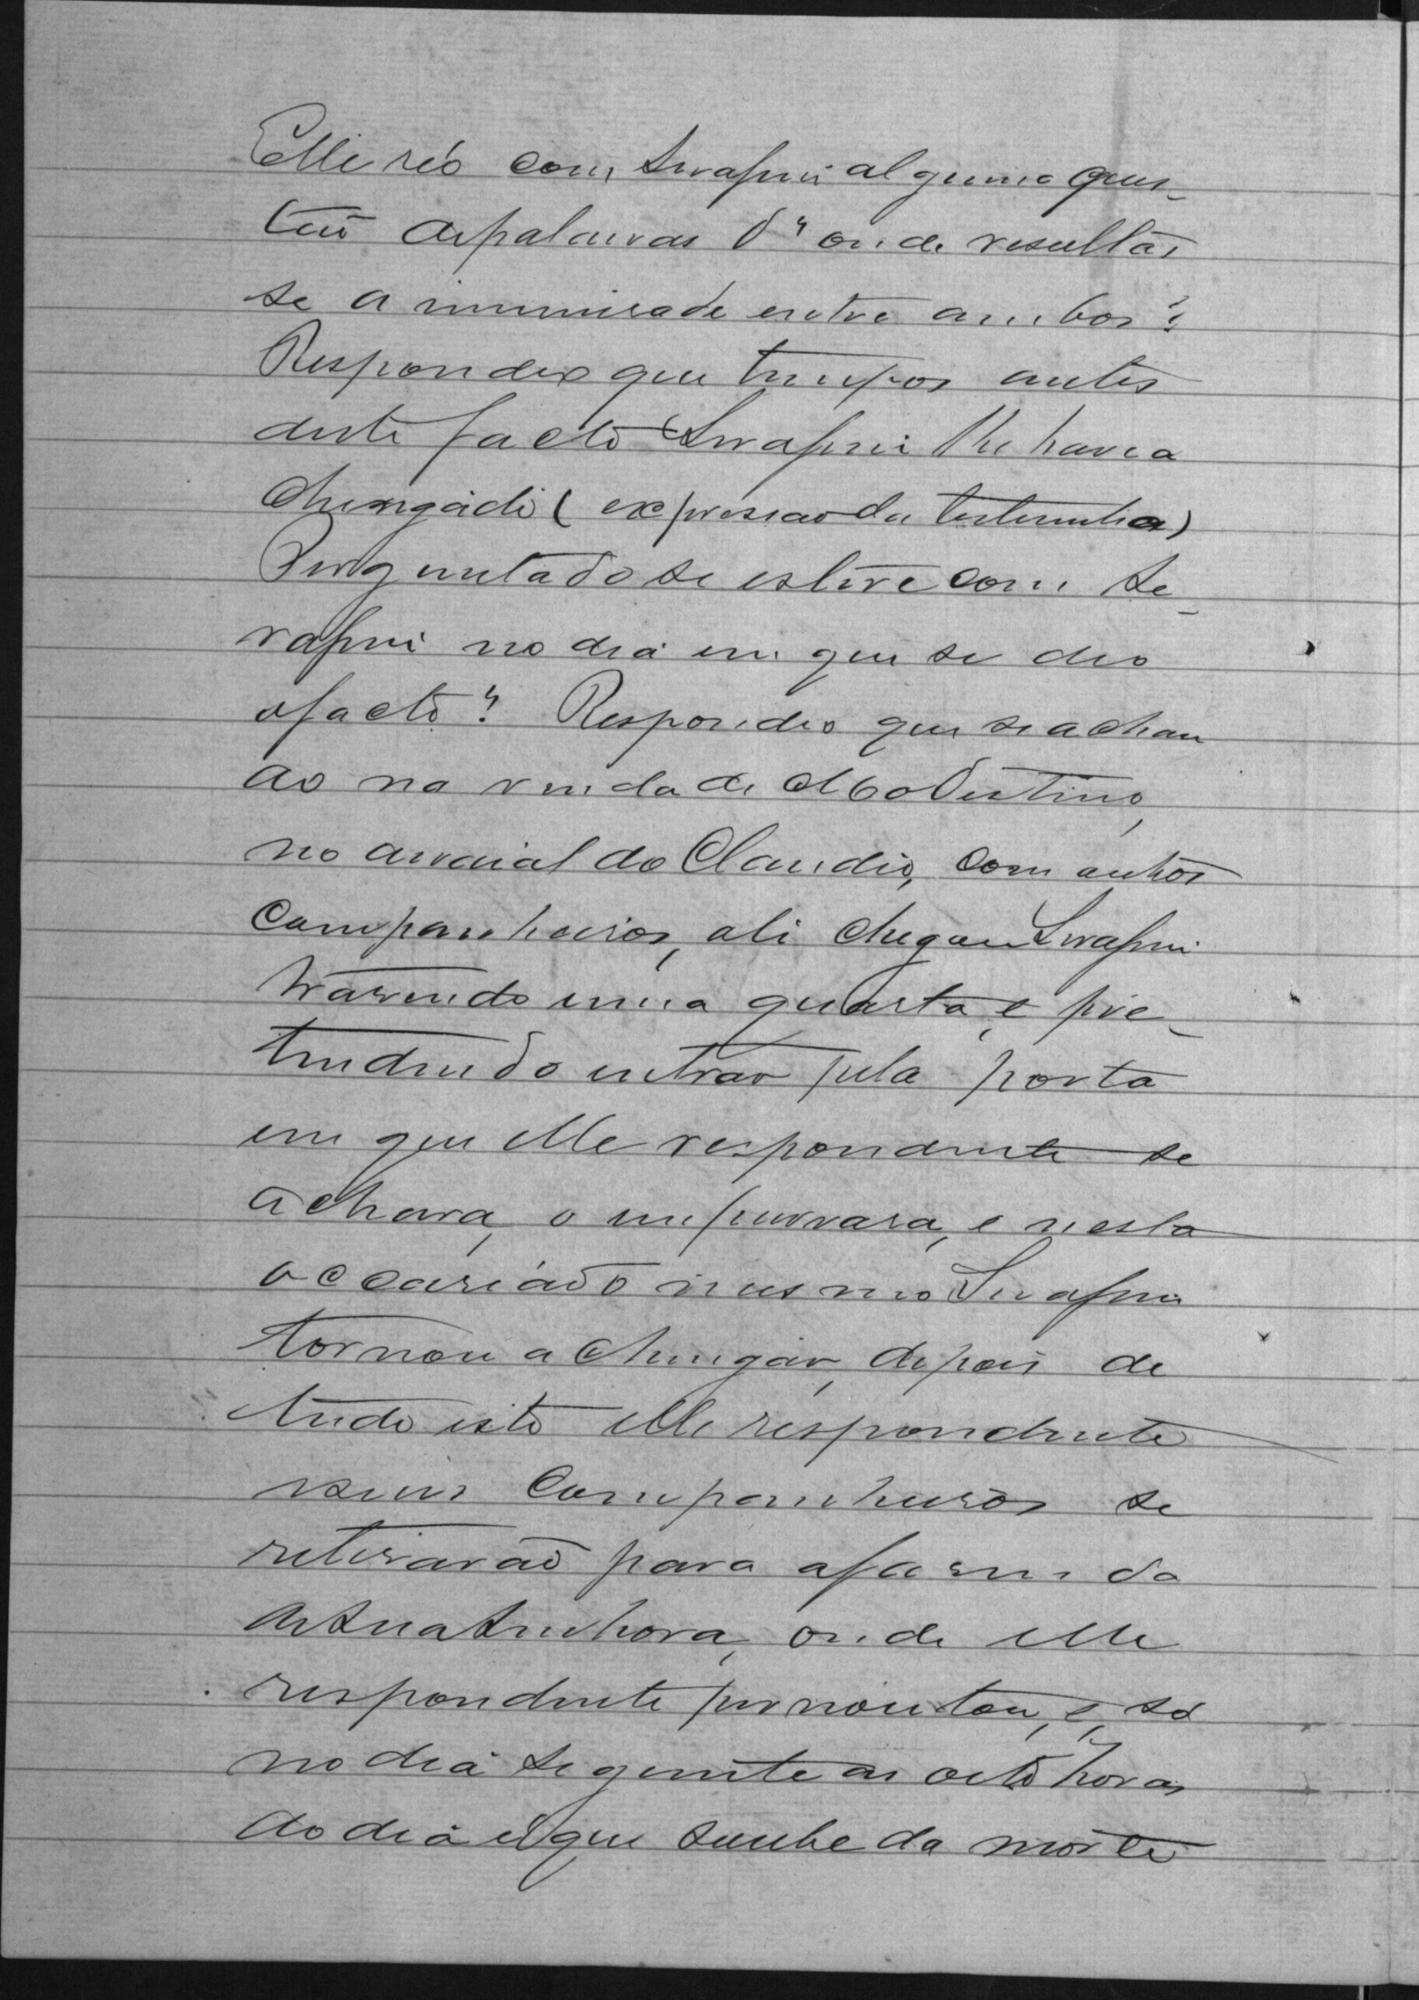 Elle réo com Serafim alguma ques-
tão de palavras d'onde resultas
se a inimisade entre ambos?
Respondeo que tempos antes
deste facto Serafim lhe havia
chingádo (expressão da testemunha)
Perguntado se estive com Se-
rafim no dia em que se deo
o facto? Respondeo que se achan
do na venda de Modestino,
no arraial do Claudio, com outros
companheiros, ali chegou Serafim
trasendo uma quarta, e pre-
tendendo entrar pela porta
em que elle respondente se
achava, o empurrara, e nesta
occasiáo mesmo Serafim
tornou a chingar, depois de
tudo isto elle respondente
e seus companheiros se
retirarão para a fasenda
de sua Senhora, onde elle
respondente pernoutou, e, só
no dia seguinte as oito horas
do dia é que soube da morte